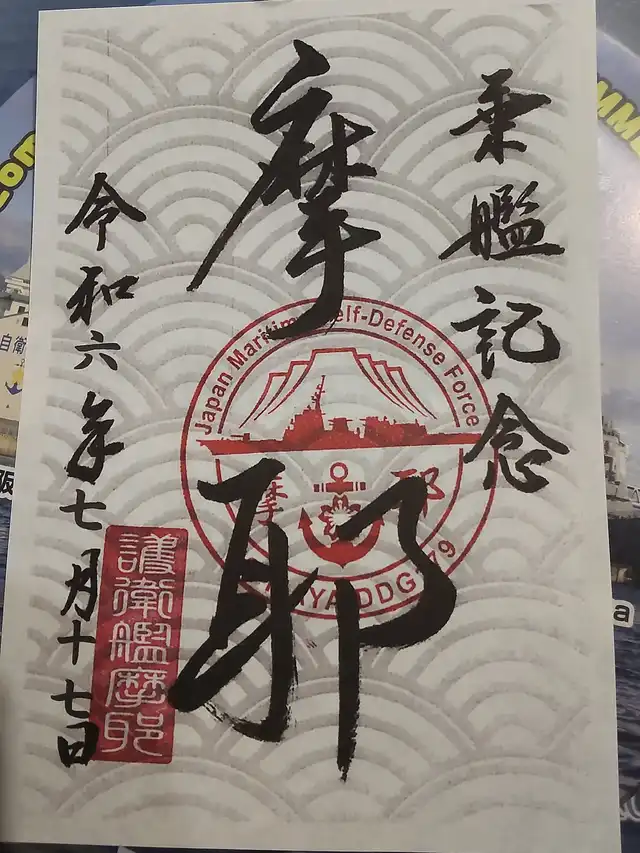 乗艦記念
摩耶
令和六年七月十七日
Japan Maritime Self-Defense Force
摩耶
MAYA DDG-179
護衛艦摩耶
com
MME
自衛
阪
a